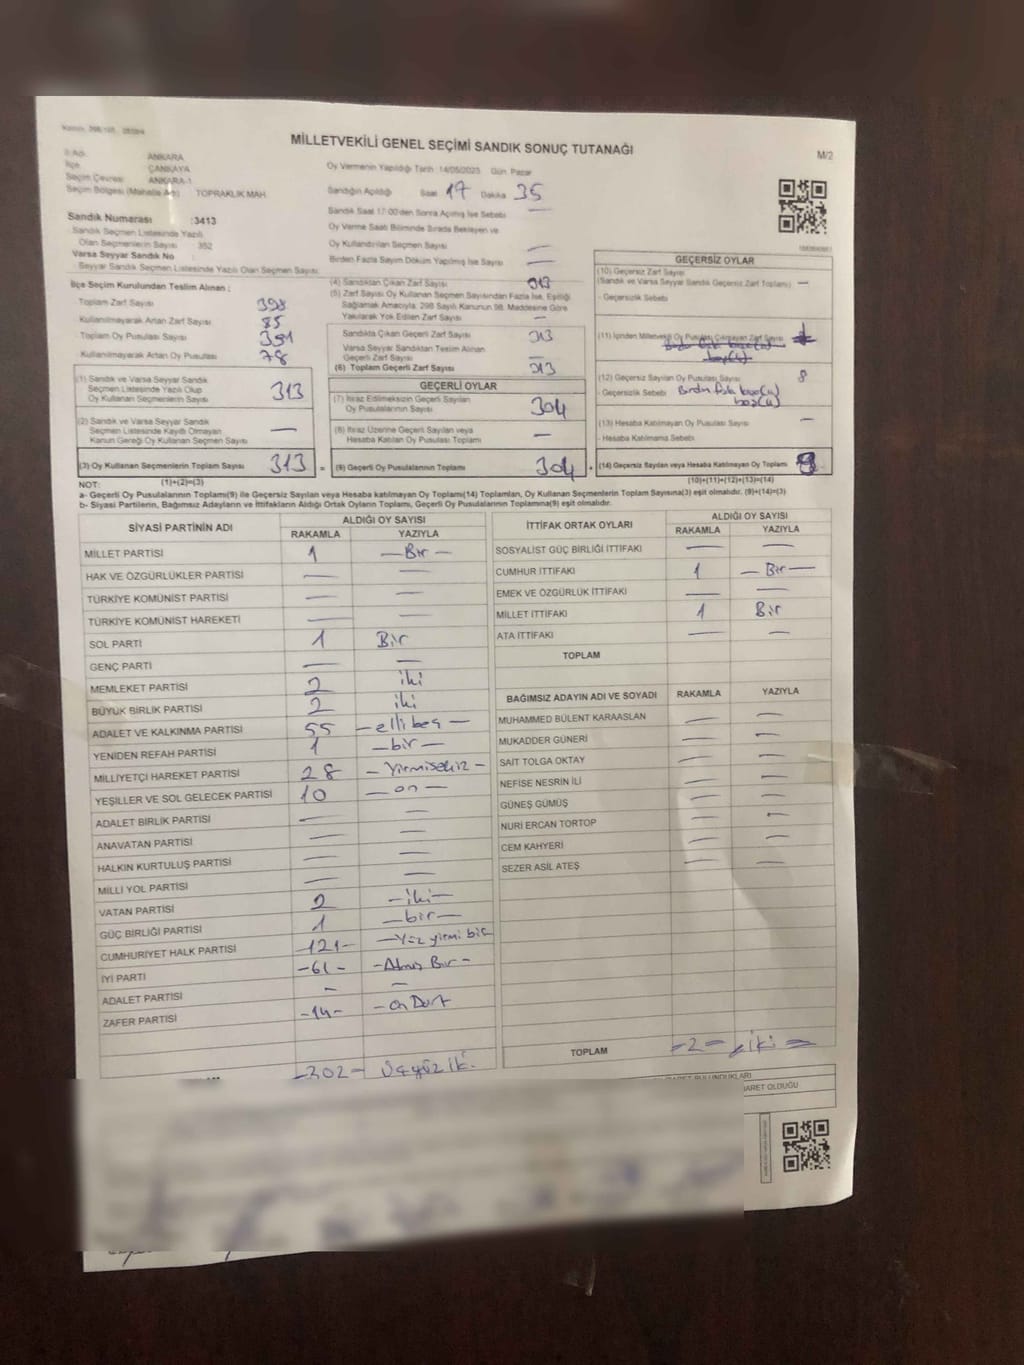 MİLLETVEKİLİ GENEL SEÇİMİ SANDIK SONUÇ TUTANAĞI
M/2
İli Adı ANKARA
İlçe ÇANKAYA
Seçim Çevresi ANKARA-1
Seçim Bölgesi (Mahalle Adı) TOPRAKLIK MAH.
Oy Vermenin Yapıldığı Tarih :14/05/2023 Gün: Pazar
Sandığın Açıldığı Saat 17 Dakika 35
Sandık Saat 17:00'den Sonra Açılmış İse Sebebi —
Oy Verme Saati Bitiminde Sırada Bekleyen ve
Oy Kullandırılan Seçmen Sayısı —
Birden Fazla Sayım Döküm Yapılmış İse Sayısı —
Sandık Numarası :3413
Sandık Seçmen Listesinde Yazılı
Olan Seçmenlerin Sayısı 352
Varsa Seyyar Sandık No
Seyyar Sandık Seçmen Listesinde Yazılı Olan Seçmen Sayısı:
İlçe Seçim Kurulundan Teslim Alınan :
Toplam Zarf Sayısı 398
Kullanılmayarak Artan Zarf Sayısı 85
Toplam Oy Pusulası Sayısı 391
Kullanılmayarak Artan Oy Pusulası 78
(1) Sandık ve Varsa Seyyar Sandık
Seçmen Listesinde Yazılı Olup
Oy Kullanan Seçmenlerin Sayısı 313
(2) Sandık ve Varsa Seyyar Sandık
Seçmen Listesinde Kaydı Olmayan
Kanun Gereği Oy Kullanan Seçmen Sayısı —
(3) Oy Kullanan Seçmenlerin Toplam Sayısı 313
(1)+(2)=(3)
(4) Sandıktan Çıkan Zarf Sayısı 313
(5) Zarf Sayısı Oy Kullanan Seçmen Sayısından Fazla İse, Eşitliği
Sağlamak Amacıyla, 298 Sayılı Kanunun 98. Maddesine Göre
Yakılarak Yok Edilen Zarf Sayısı —
Sandıkta Çıkan Geçerli Zarf Sayısı 313
Varsa Seyyar Sandıktan Teslim Alınan
Geçerli Zarf Sayısı —
(6) Toplam Geçerli Zarf Sayısı 313
GEÇERLİ OYLAR
(7) İtiraz Edilmeksizin Geçerli Sayılan
Oy Pusulalarının Sayısı 304
(8) İtiraz Üzerine Geçerli Sayılan veya
Hesaba Katılan Oy Pusulası Toplamı —
(9) Geçerli Oy Pusulalarının Toplamı 304
GEÇERSİZ OYLAR
(10) Geçersiz Zarf Sayısı
(Sandık ve Varsa Seyyar Sandık Geçersiz Zarf Toplamı) —
- Geçersizlik Sebebi
(11) İçinden Milletvekili Oy Pusulası Çıkmayan Zarf Sayısı
(12) Geçersiz Sayılan Oy Pusulası Sayısı 8
- Geçersizlik Sebebi Birden fazla
(13) Hesaba Katılmayan Oy Pusulası Sayısı —
- Hesaba Katılmama Sebebi
(14) Geçersiz Sayılan veya Hesaba Katılmayan Oy Toplamı
(10)+(11)+(12)+(13)=(14)
NOT:
a- Geçerli Oy Pusulalarının Toplamı(9) ile Geçersiz Sayılan veya Hesaba katılmayan Oy Toplamı(14) Toplamları, Oy Kullanan Seçmenlerin Toplam Sayısına(3) eşit olmalıdır. (9)+(14)=(3)
b- Siyasi Partilerin, Bağımsız Adayların ve İttifakların Aldığı Ortak Oyların Toplamı, Geçerli Oy Pusulalarının Toplamına(9) eşit olmalıdır.
SİYASİ PARTİNİN ADI ALDIĞI OY SAYISI
RAKAMLA YAZIYLA
MİLLET PARTİSİ 1 — Bir —
HAK VE ÖZGÜRLÜKLER PARTİSİ — —
TÜRKİYE KOMÜNİST PARTİSİ — —
TÜRKİYE KOMÜNİST HAREKETİ — —
SOL PARTİ 1 Bir
GENÇ PARTİ — —
MEMLEKET PARTİSİ 2 iki
BÜYÜK BİRLİK PARTİSİ 2 iki
ADALET VE KALKINMA PARTİSİ 55 — elli beş —
YENİDEN REFAH PARTİSİ 1 — bir —
MİLLİYETÇİ HAREKET PARTİSİ 28 — Yirmisekiz —
YEŞİLLER VE SOL GELECEK PARTİSİ 10 — on —
ADALET BİRLİK PARTİSİ — —
ANAVATAN PARTİSİ — —
HALKIN KURTULUŞ PARTİSİ — —
MİLLİ YOL PARTİSİ — —
VATAN PARTİSİ 2 — iki —
GÜÇ BİRLİĞİ PARTİSİ 1 — bir —
CUMHURİYET HALK PARTİSİ -121- — Yüz yirmi bir
İYİ PARTİ -61- - Atmış Bir -
ADALET PARTİSİ — —
ZAFER PARTİSİ -14- - On Dört
-302- Üçyüz iki
İTTİFAK ORTAK OYLARI ALDIĞI OY SAYISI
RAKAMLA YAZIYLA
SOSYALİST GÜÇ BİRLİĞİ İTTİFAKI — —
CUMHUR İTTİFAKI 1 — Bir —
EMEK VE ÖZGÜRLÜK İTTİFAKI — —
MİLLET İTTİFAKI 1 Bir
ATA İTTİFAKI — —
TOPLAM
BAĞIMSIZ ADAYIN ADI VE SOYADI RAKAMLA YAZIYLA
MUHAMMED BÜLENT KARAASLAN — —
MUKADDER GÜNERİ — —
SAİT TOLGA OKTAY — —
NEFİSE NESRİN İLİ — —
GÜNEŞ GÜMÜŞ — —
NURİ ERCAN TORTOP — —
CEM KAHYERİ — —
SEZER ASİL ATEŞ — —
TOPLAM -2- iki